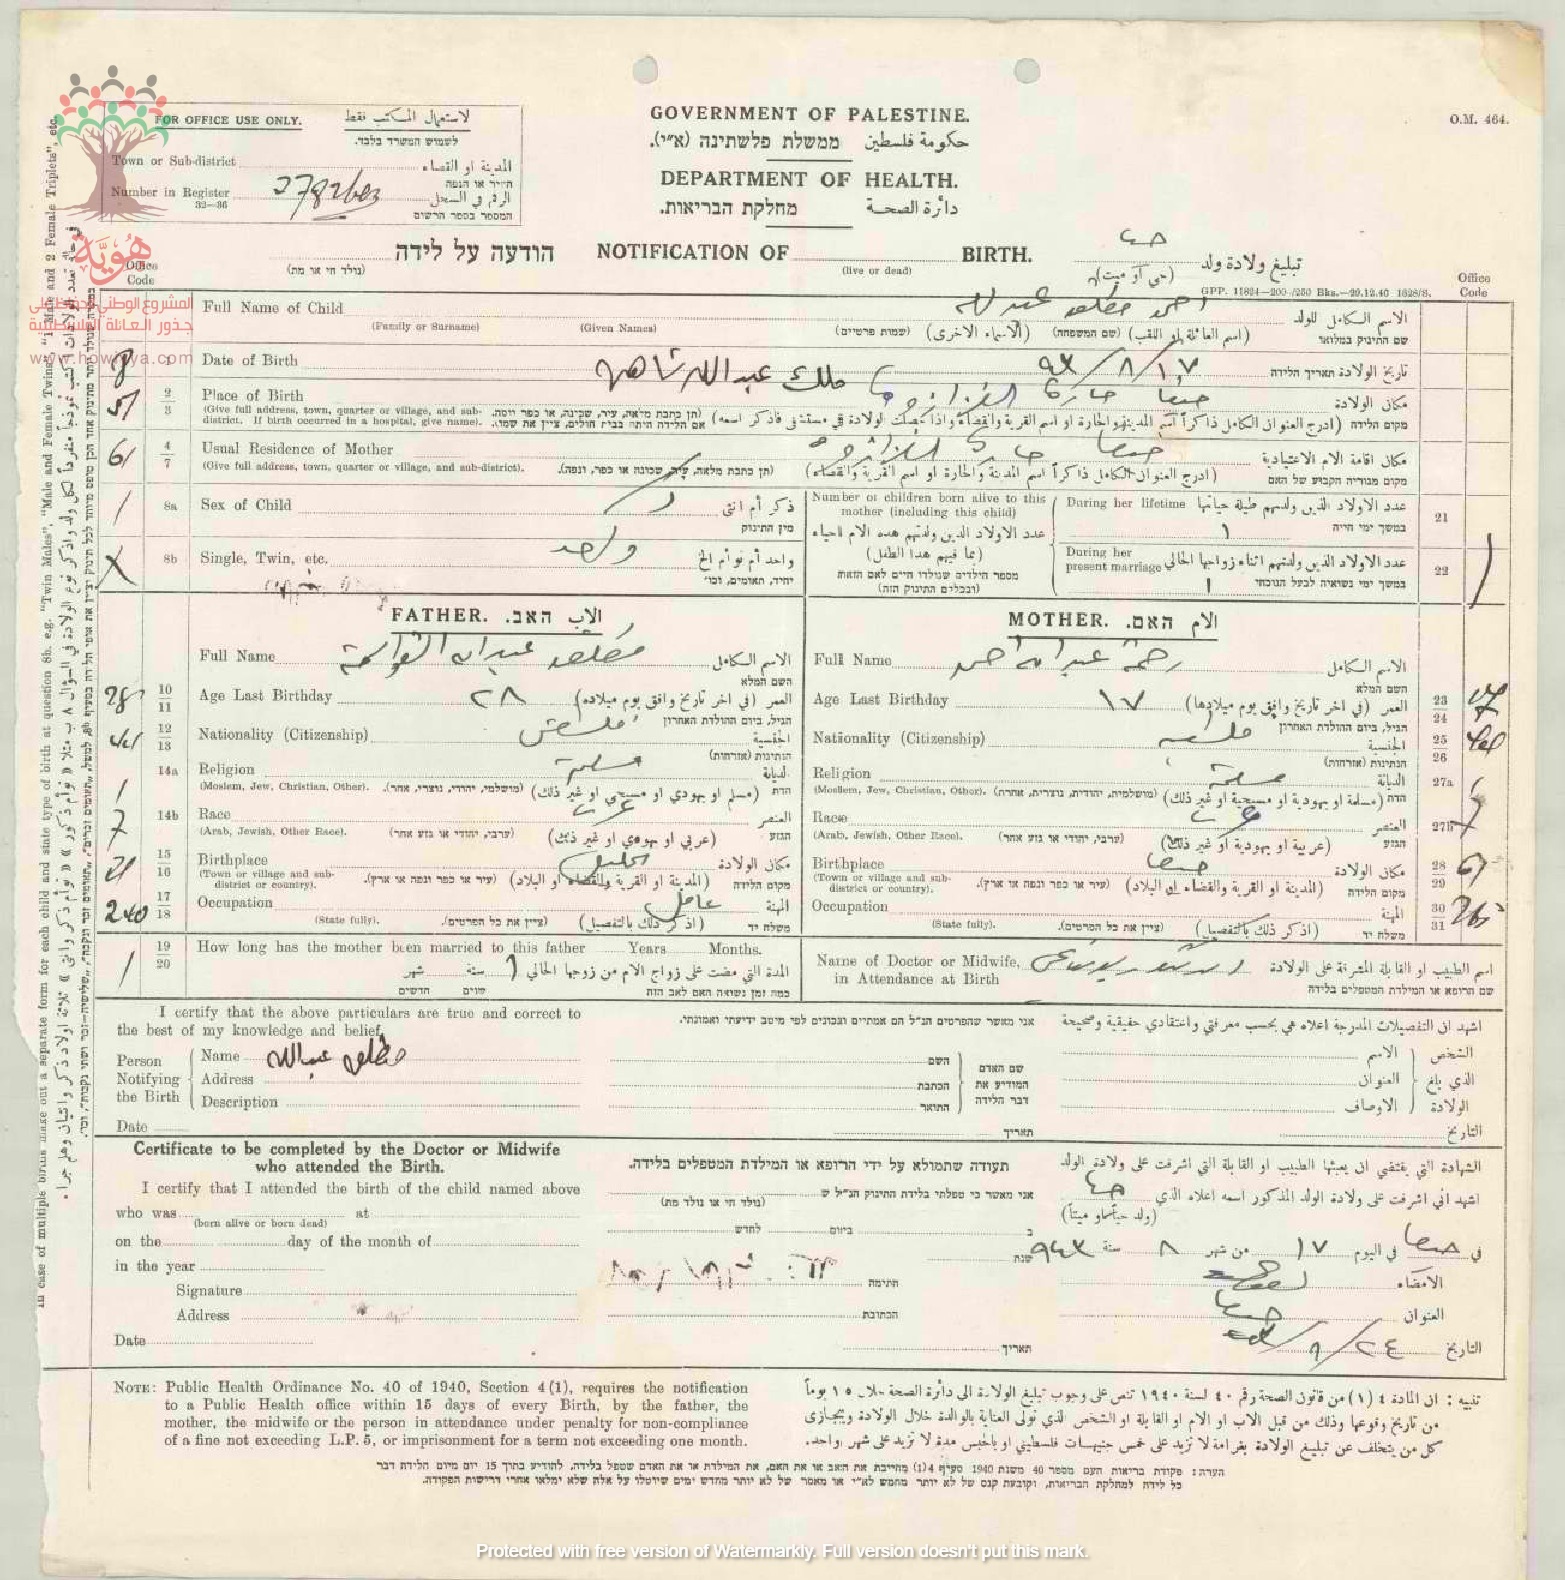 GOVERNMENT OF PALESTINE.
حكومة فلسطين ממשלת פלשתינה (א״י).
DEPARTMENT OF HEALTH.
دائرة الصحة מחלקת הבריאות.
O.M. 464.
FOR OFFICE USE ONLY. لاستعمال المكتب فقط
לשמוש המשרד בלבד.
Town or Sub-district المدينة او القضاء
העיר או הנפה
Number in Register الرقم في السجل
32—36 המספר בספר הרשום
הודעה על לידה NOTIFICATION OF BIRTH. تبليغ ولادة ولد حيا
(נולד חי או מת) (live or dead) (حي او ميت)
GPP. 11824—200/250 Bks.—20.12.40 1628/S.
Office Code
Office Code
Full Name of Child احمد مطلق عبد الله الاسم الكامل للولد
(Family or Surname) (Given Names) (שמות פרטיים) (الاسماء الاخرى) (שם המשפחה) (اسم العائلة او اللقب) שם התינוק במלואו
1 Date of Birth ١٧/٨/٩٤٣ تاريخ الولادة תאריך הלידה
ملك عبد الله شاهين
2 3 Place of Birth حارة مكان الولادة
(Give full address, town, quarter or village, and sub-district. If birth occurred in a hospital, give name). (תן כתבת מלאה, עיר, שכונה, או כפר ונפה. אם הלידה היתה בבית חולים, ציין את שמו). (ادرج العنوان الكامل ذاكراً اسم المدينة والحارة او اسم القرية والقضاء واذا حصلت الولادة في مستشفى فاذكر اسمه) מקום הלידה
4 7 Usual Residence of Mother حارة مكان اقامة الام الاعتيادية
(Give full address, town, quarter or village, and sub-district). (תן כתבת מלאה, עיר, שכונה או כפר, ונפה). (ادرج العنوان الكامل ذاكراً اسم المدينة والحارة او اسم القرية والقضاء) מקום מגוריה הקבוע של האם
8a Sex of Child ذكر أم انثى
מין התינוק
8b Single, Twin, etc. واحد واحد أم توأم الخ
יחיד, תאומים, וכו׳
Number of children born alive to this mother (including this child)
عدد الاولاد الذين ولدتهم هذه الام احياء
(بما فيهم هذا الطفل)
מספר הילדים שנולדו חיים לאם הזאת
(ובכללם התינוק הזה)
During her lifetime عدد الاولاد الذين ولدتهم طيلة حياتها 21
١ במשך ימי חייה
During her present marriage عدد الاولاد الذين ولدتهم اثناء زواجها الحالي 22
١ במשך ימי נשואיה לבעל הנוכחי
FATHER. الاب האב.
Full Name مطلق عبد الله القواسمة الاسم الكامل
השם המלא
28 10 11 Age Last Birthday ٢٨ العمر (في اخر تاريخ وافق يوم ميلاده)
הגיל, ביום ההולדת האחרון
12 13 Nationality (Citizenship) الجنسية
הנתינות (אזרחות)
14a Religion مسلم الديانة
(Moslem, Jew, Christian, Other). (מושלמי, יהודי, נוצרי, אחר). (مسلم او يهودي او مسيحي او غير ذلك) הדת
14b Race عربي العنصر
(Arab, Jewish, Other Race). (ערבי, יהודי או גזע אחר) (عربي او يهودي او غير ذلك) הגזע
21 15 16 Birthplace الخليل مكان الولادة
(Town or village and sub-district or country). (עיר או כפר ונפה או ארץ). (المدينة او القرية والقضاء او البلاد) מקום הלידה
240 17 18 Occupation عامل المهنة
(State fully). (ציין את כל הפרטים). (اذكر ذلك بالتفصيل) משלח יד
MOTHER. الام האם.
Full Name رحمة عبد الله احمد الاسم الكامل
השם המלא
Age Last Birthday ١٧ العمر (في اخر تاريخ وافق يوم ميلادها) 23 24
הגיל, ביום ההולדת האחרון
Nationality (Citizenship) الجنسية 25 26
הנתינות (אזרחות)
Religion مسلمة الديانة 27a
(Moslem, Jew, Christian, Other). (מושלמית, יהודית, נוצרית, אחרת) (مسلمة او يهودية او مسيحية او غير ذلك) הדת
Race العنصر 27b
(Arab, Jewish, Other Race). (ערבי, יהודי או גזע אחר) (عربية او يهودية او غير ذلك) הגזע
Birthplace مكان الولادة 28 29
(Town or village and sub-district or country). (עיר או כפר ונפה או ארץ). (المدينة او القرية والقضاء او البلاد) מקום הלידה
Occupation المهنة 30 31
(State fully). (ציין את כל הפרטים). (اذكر ذلك بالتفصيل) משלח יד
19 20 How long has the mother been married to this father Years Months.
المدة التي مضت على زواج الام من زوجها الحالي سنة شهر
כמה זמן נשואה האם לאב הזה שנים חדשים
Name of Doctor or Midwife, in Attendance at Birth اسم الطبيب او القابلة المشرفة على الولادة
שם הרופא או המילדת המטפלים בלידה
I certify that the above particulars are true and correct to the best of my knowledge and belief.
אני מאשר שהפרטים הנ״ל הם אמתיים ונכונים לפי מיטב ידיעתי ואמונתי.
اشهد ان التفصيلات المدرجة اعلاه هي بحسب معرفتي واعتقادي حقيقية وصحيحة
Person Notifying the Birth
Name مطلق عبد الله
Address
Description
Date
שם האדם המודיע את דבר הלידה
השם
הכתבת
התואר
תאריך
الشخص الذي بلغ الولادة
الاسم
العنوان
الاوصاف
التاريخ
Certificate to be completed by the Doctor or Midwife who attended the Birth.
I certify that I attended the birth of the child named above
who was at
(born alive or born dead)
on the day of the month of
in the year
Signature
Address
Date
תעודה שתמולא על ידי הרופא או המילדת המטפלים בלידה.
אני מאשר כי טפלתי בלידת התינוק הנ״ל ש
(נולד חי או נולד מת)
ב ביום לחדש
שנת
חתימה
הכתובת
תאריך
الشهادة التي يقتضي ان يعبئها الطبيب او القابلة التي اشرفت على ولادة الولد
اشهد اني اشرفت على ولادة الولد المذكور اسمه اعلاه الذي حيا
(ولد حياً او ميتاً)
في في اليوم ١٧ من شهر ٨ سنة ٩٤٣
الامضاء
العنوان
التاريخ ٢٤/٩/
NOTE: Public Health Ordinance No. 40 of 1940, Section 4(1), requires the notification
to a Public Health office within 15 days of every Birth, by the father, the
mother, the midwife or the person in attendance under penalty for non-compliance
of a fine not exceeding L.P. 5, or imprisonment for a term not exceeding one month.
تنبيه : ان المادة ٤ (١) من قانون الصحة رقم ٤٠ لسنة ١٩٤٠ تنص على وجوب تبليغ الولادة الى دائرة الصحة خلال ١٥ يوماً
من تاريخ وقوعها وذلك من قبل الاب او الام او القابلة او الشخص الذي تولى العناية بالوالدة خلال الولادة ويجازى
كل من يتخلف عن تبليغ الولادة بغرامة لا تزيد على خمس جنيهات فلسطيني او بالحبس مدة لا تزيد على شهر واحد.
הערה: פקודת בריאות העם מספר 40 משנת 1940 סעיף 4(1) מחייבת את האב או את האם, את המילדת או את האדם שטפל בלידה, להודיע בתוך 15 יום מיום הלידה דבר
כל לידה למחלקת הבריאות, וקובעת קנס של לא יותר מחמש לא״י או מאסר של לא יותר מחדש ימים שיוטלו על אלה שלא ימלאו אחרי דרישות הפקודה.
In case of multiple births make out a separate form for each child and state type of birth at question 8b. e.g. "Twin Males", "Male and Female Twins", "1 Male and 2 Female Triplets", etc.
هُويَّة
المشروع الوطني للحفاظ على
جذور العائلة الفلسطينية
www.howiyya.com
Protected with free version of Watermarkly. Full version doesn't put this mark.